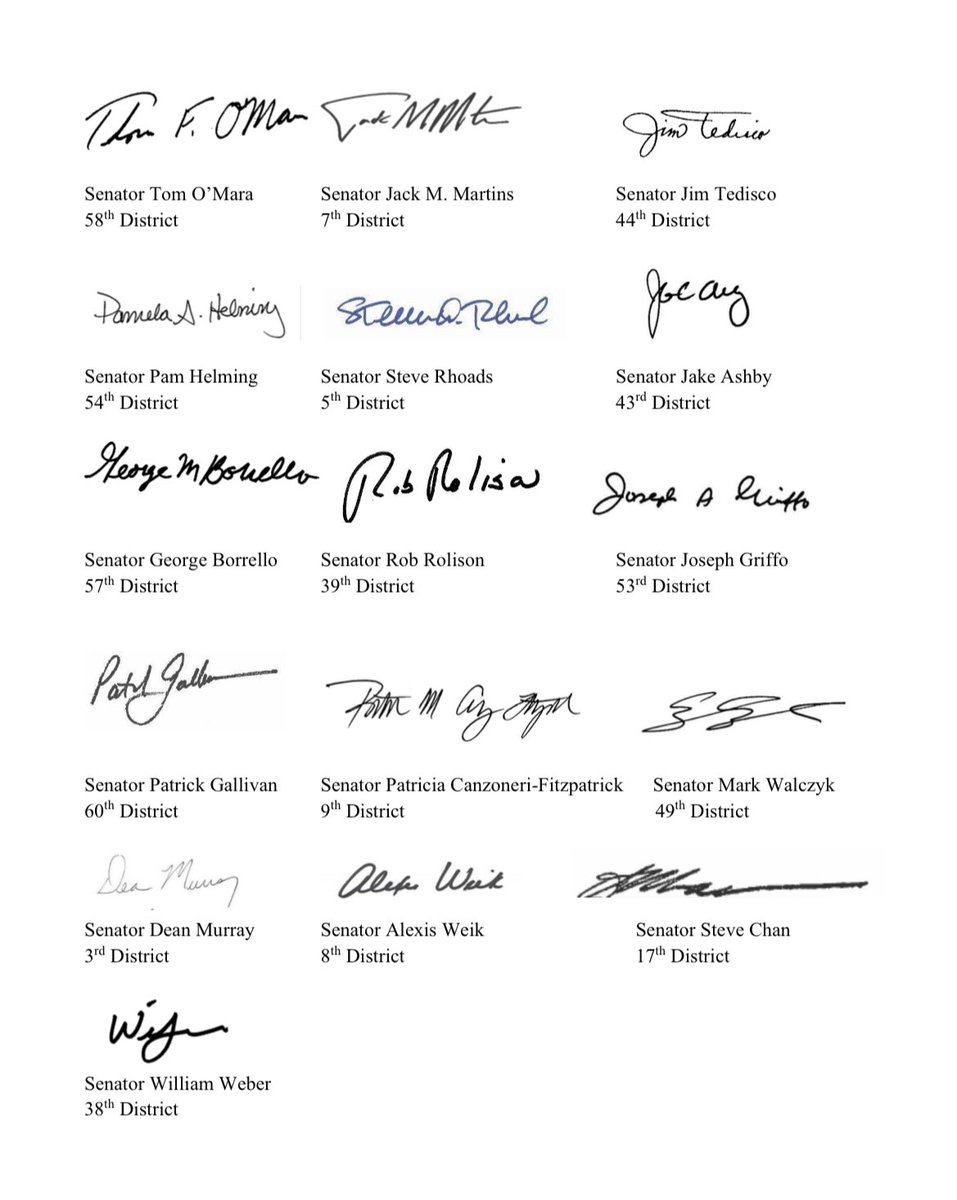 Thom F. O'Mara
Senator Tom O’Mara
58th District
Jack M Martins
Senator Jack M. Martins
7th District
Jim Tedisco
Senator Jim Tedisco
44th District
Pamela A. Helming
Senator Pam Helming
54th District
Senator Steve Rhoads
5th District
Senator Jake Ashby
43rd District
George M Borrello
Senator George Borrello
57th District
Rob Rolison
Senator Rob Rolison
39th District
Joseph A Griffo
Senator Joseph Griffo
53rd District
Senator Patrick Gallivan
60th District
Senator Patricia Canzoneri-Fitzpatrick
9th District
Senator Mark Walczyk
49th District
Dean Murray
Senator Dean Murray
3rd District
Alexis Weik
Senator Alexis Weik
8th District
Senator Steve Chan
17th District
Senator William Weber
38th District